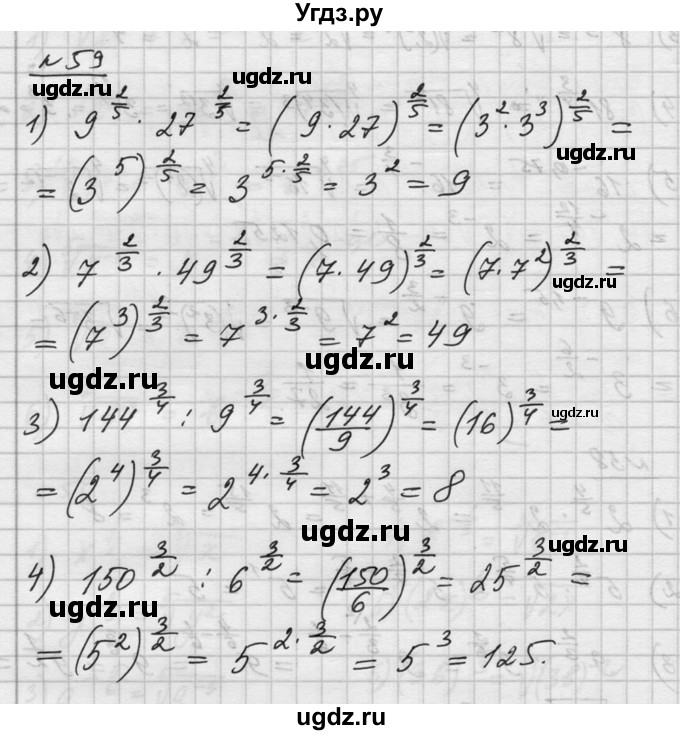 Угдз.ру
№59
ugdz.ru ugdz.ru
1) 9^(2/5) · 27^(2/5) = (9·27)^(2/5) = (3^2·3^3)^(2/5) =
ugdz.ru ugdz.ru
= (3^5)^(2/5) = 3^(5·2/5) = 3^2 = 9
2) 7^(2/3) · 49^(2/3) = (7·49)^(2/3) = (7·7^2)^(2/3) =
ugdz.ru
= (7^3)^(2/3) = 7^(3·2/3) = 7^2 = 49
ugdz.ru ugdz.ru
3) 144^(3/4) : 9^(3/4) = (144/9)^(3/4) = (16)^(3/4) =
ugdz.ru
= (2^4)^(3/4) = 2^(4·3/4) = 2^3 = 8
ugdz.ru ugdz.ru
4) 150^(3/2) : 6^(3/2) = (150/6)^(3/2) = 25^(3/2) =
ugdz.ru
= (5^2)^(3/2) = 5^(2·3/2) = 5^3 = 125.
ugdz.ru ugdz.ru
ugdz.ru